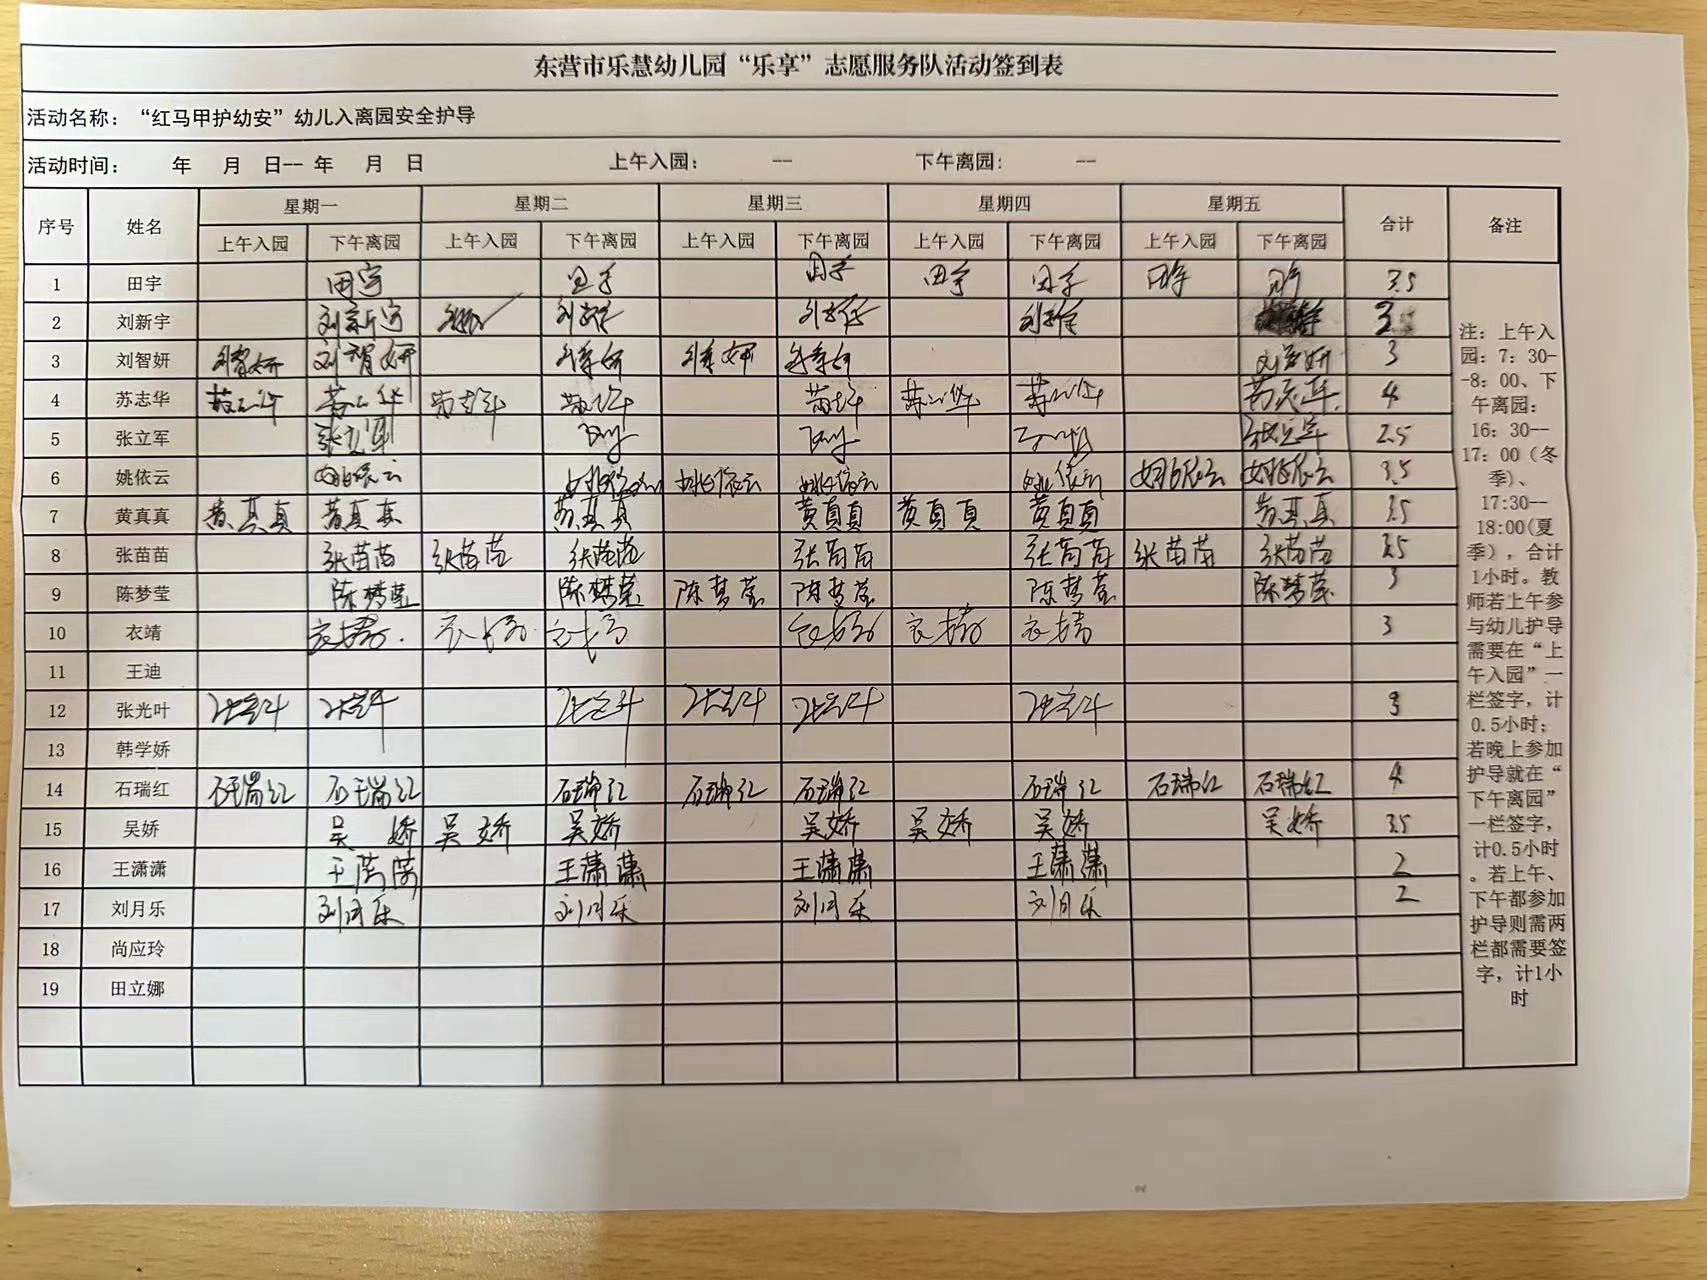 东营市乐慧幼儿园“乐享”志愿服务队活动签到表
活动名称：“红马甲护幼安”幼儿入离园安全护导
活动时间： 年 月 日-- 年 月 日 上午入园： -- 下午离园： --
序号 姓名 星期一 星期二 星期三 星期四 星期五 合计 备注
上午入园 下午离园 上午入园 下午离园 上午入园 下午离园 上午入园 下午离园 上午入园 下午离园
1 田宇 田宇 田宇 田宇 田宇 田宇 田宇 田宇 3.5
2 刘新宇 刘新宇 3
3 刘智妍 刘智妍 刘智妍 刘智妍 刘智妍 刘智妍 刘智妍 3
4 苏志华 苏志华 苏志华 苏志华 苏志华 苏志华 苏志华 苏志华 苏志华 4
5 张立军 张立军 张立军 2.5
6 姚依云 姚依云 姚依云 姚依云 姚依云 姚依云 姚依云 姚依云 3.5
7 黄真真 黄真真 黄真真 黄真真 黄真真 黄真真 黄真真 黄真真 3.5
8 张苗苗 张苗苗 张苗苗 张苗苗 张苗苗 张苗苗 张苗苗 张苗苗 3.5
9 陈梦莹 陈梦莹 陈梦莹 陈梦莹 陈梦莹 陈梦莹 陈梦莹 3
10 衣靖 衣靖 衣靖 衣靖 衣靖 衣靖 衣靖 3
11 王迪
12 张光叶 张光叶 张光叶 张光叶 张光叶 张光叶 张光叶 3
13 韩学娇
14 石瑞红 石瑞红 石瑞红 石瑞红 石瑞红 石瑞红 石瑞红 石瑞红 石瑞红 4
15 吴娇 吴娇 吴娇 吴娇 吴娇 吴娇 吴娇 吴娇 3.5
16 王潇潇 王潇潇 王潇潇 王潇潇 王潇潇 2
17 刘月乐 刘月乐 刘月乐 刘月乐 刘月乐 2
18 尚应玲
19 田立娜
注：上午入
园：7：30-
-8：00、下
午离园：
16：30--
17：00（冬
季）、
17:30--
18:00(夏
季），合计
1小时。教
师若上午参
与幼儿护导
需要在“上
午入园”一
栏签字，计
0.5小时；
若晚上参加
护导就在“
下午离园”
一栏签字，
计0.5小时
。若上午、
下午都参加
护导则需两
栏都需要签
字，计1小
时